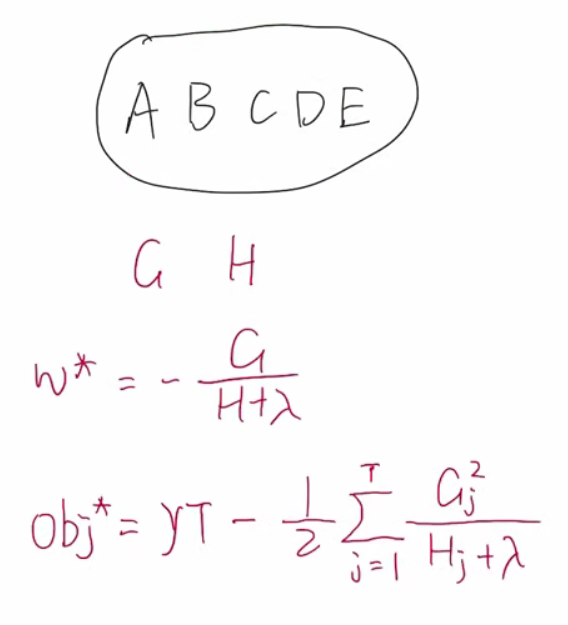 A B C D E
G H
w* = - G / (H+λ)
Obj* = γT - 1/2 ∑_{j=1}^{T} G_j^2 / (H_j+λ)